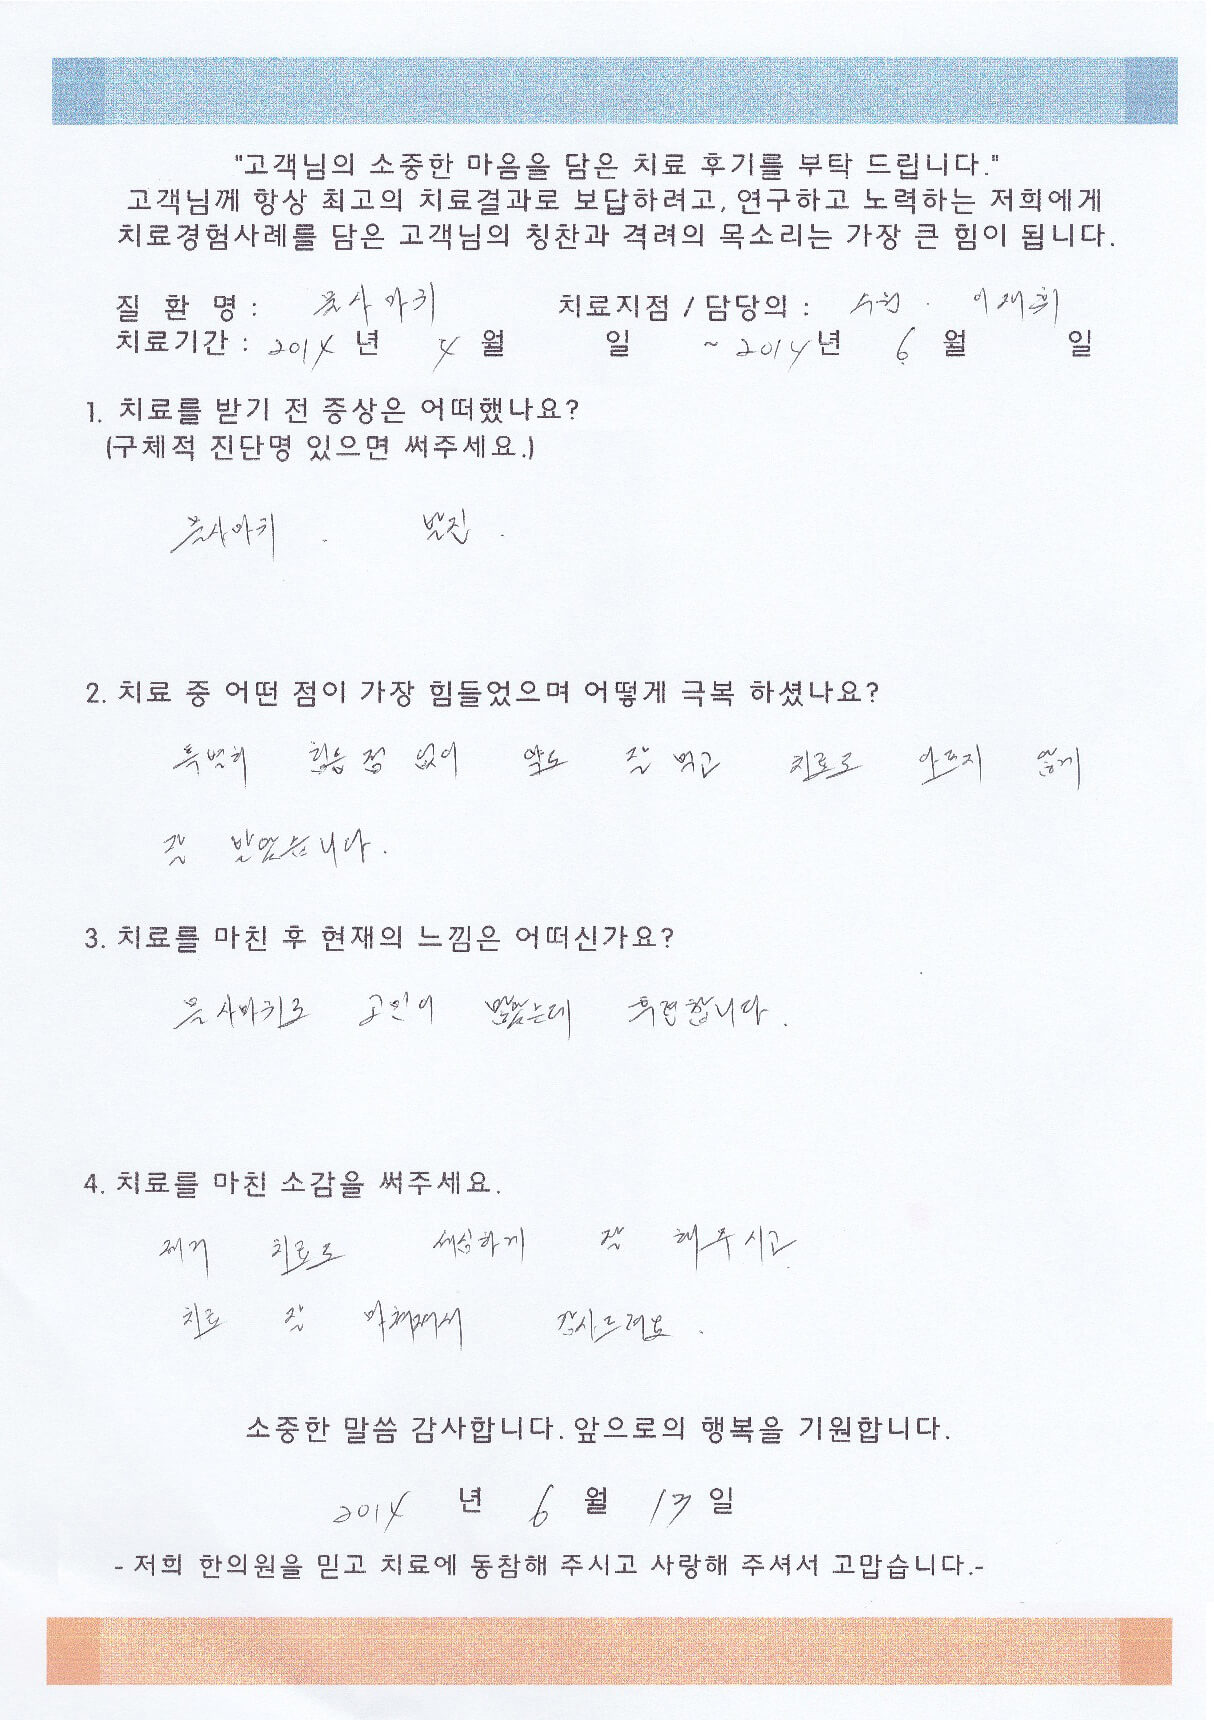 "고객님의 소중한 마음을 담은 치료 후기를 부탁 드립니다."
고객님께 항상 최고의 치료결과로 보답하려고, 연구하고 노력하는 저희에게
치료경험사례를 담은 고객님의 칭찬과 격려의 목소리는 가장 큰 힘이 됩니다.
질 환 명 : 물사마귀 치료지점 / 담당의 : 수원 · 이재휘
치료기간 : 2014 년 4 월 일 ~ 2014 년 6 월 일
1. 치료를 받기 전 증상은 어떠했나요?
(구체적 진단명 있으면 써주세요.)
물사마귀 . 발진 .
2. 치료 중 어떤 점이 가장 힘들었으며 어떻게 극복 하셨나요?
특별히 힘든점 없이 약도 잘 먹고 치료도 아프지 않게
잘 받았습니다.
3. 치료를 마친 후 현재의 느낌은 어떠신가요?
물사마귀로 고민이 많았는데 후련합니다.
4. 치료를 마친 소감을 써주세요.
제거 치료도 세심하게 잘 해주시고
치료 잘 마쳐져서 감사드려요.
소중한 말씀 감사합니다. 앞으로의 행복을 기원합니다.
2014 년 6 월 13 일
- 저희 한의원을 믿고 치료에 동참해 주시고 사랑해 주셔서 고맙습니다.-